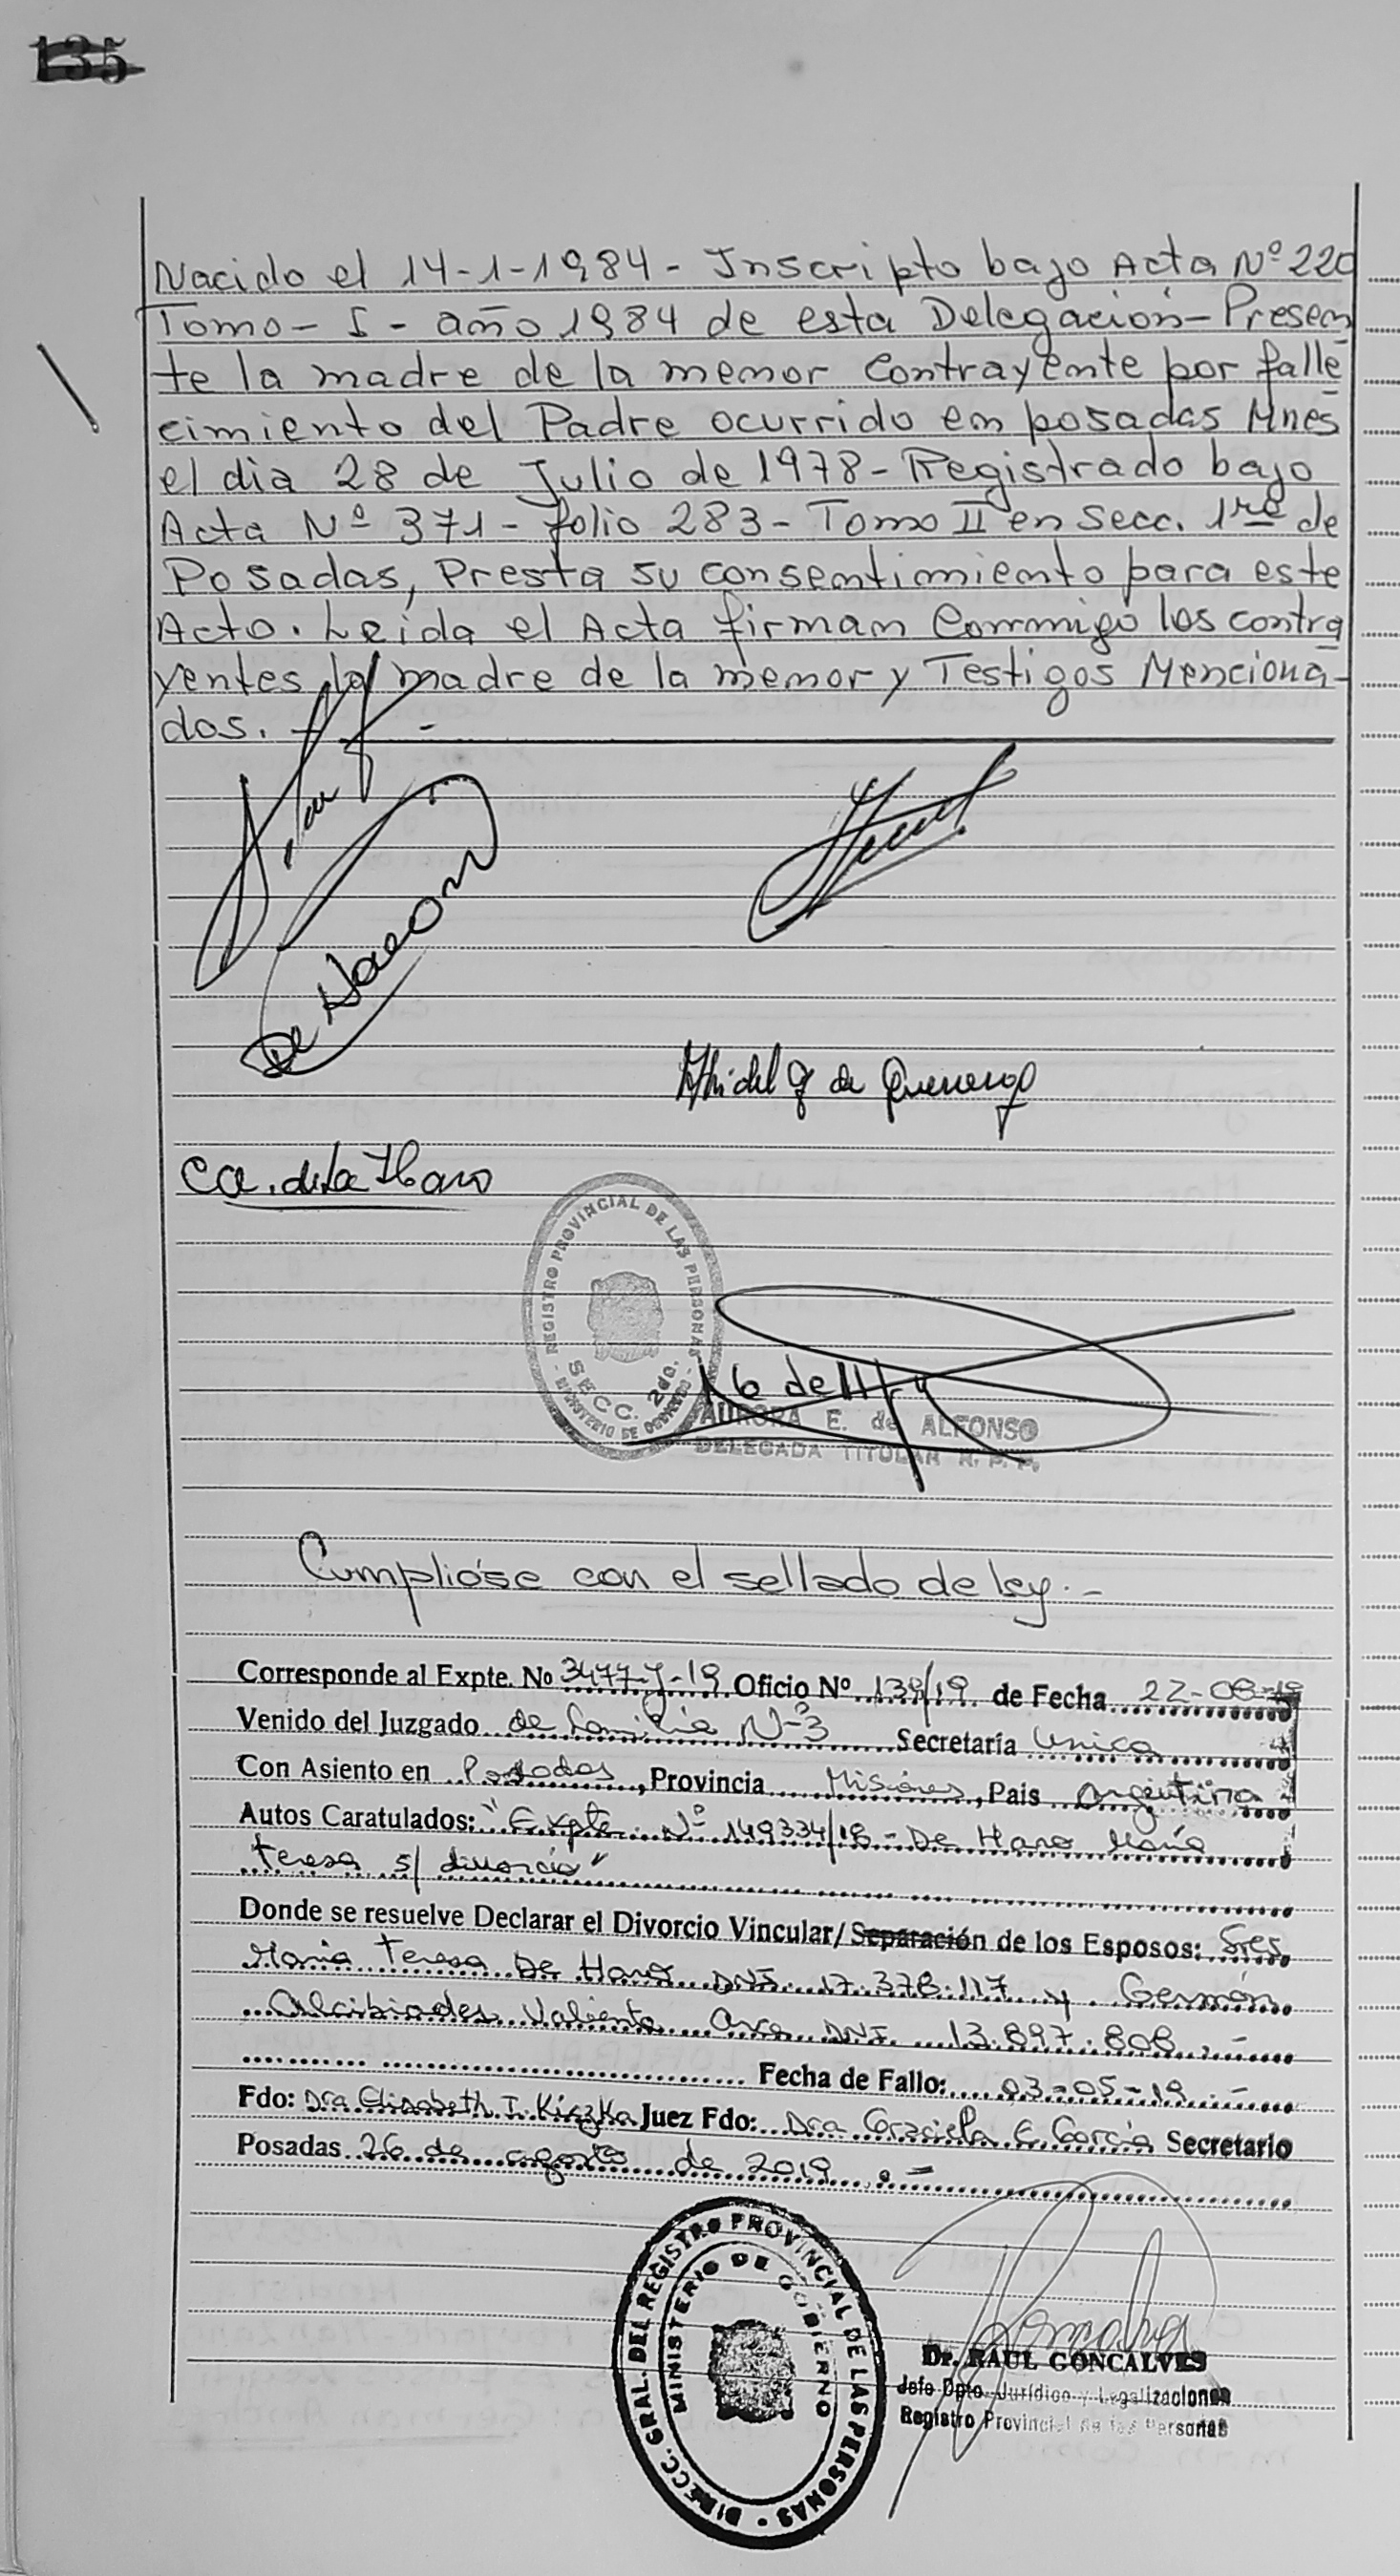 135
Nacido el 14-1-1984 - Inscripto bajo Acta Nº 220
Tomo - I - año 1984 de esta Delegación - Presen
te la madre de la menor Contrayente por falle
cimiento del Padre ocurrido en posadas Mnes
el dia 28 de Julio de 1978 - Registrado bajo
Acta Nº 371 - folio 283 - Tomo II en Secc. 1ra de
Posadas, Presta su consentimiento para este
Acto. Leída el Acta firman Conmigo los contra
yentes la madre de la menor y Testigos Menciona-
dos. -
De Haro
REGISTRO PROVINCIAL DE LAS PERSONAS
SECC. 2da.
MINISTERIO DE GOBIERNO
AURORA E. de ALFONSO
DELEGADA TITULAR R. P. P.
Cumplióse con el sellado de ley. -
Corresponde al Expte. No 3477-Y-19 Oficio Nº 139/19 de Fecha 22-08-19
Venido del Juzgado de familia Nº 3 Secretaría Unica
Con Asiento en Posadas, Provincia Misiones, Pais Argentina
Autos Caratulados: "Expte Nº 149334/18 - De Haro María
Teresa s/ divorcio"
Donde se resuelve Declarar el Divorcio Vincular/Separación de los Esposos: Sres.
María Teresa De Haro DNI. 17.378.117 y Germán
Alcibiades Valiente Arce DNI. 13.897.808. -
Fecha de Fallo: 03-05-19. -
Fdo: Dra Elisabeth I. Kiczka Juez Fdo: Dra Graciela E. Garcia Secretario
Posadas 26 de agosto de 2019. =
DIRECC. GRAL. DEL REGISTRO PROVINCIAL DE LAS PERSONAS
MINISTERIO DE GOBIERNO
Dr. RAUL GONCALVES
Jefe Dpto. Jurídico y Legalizaciones
Registro Provincial de las Personas